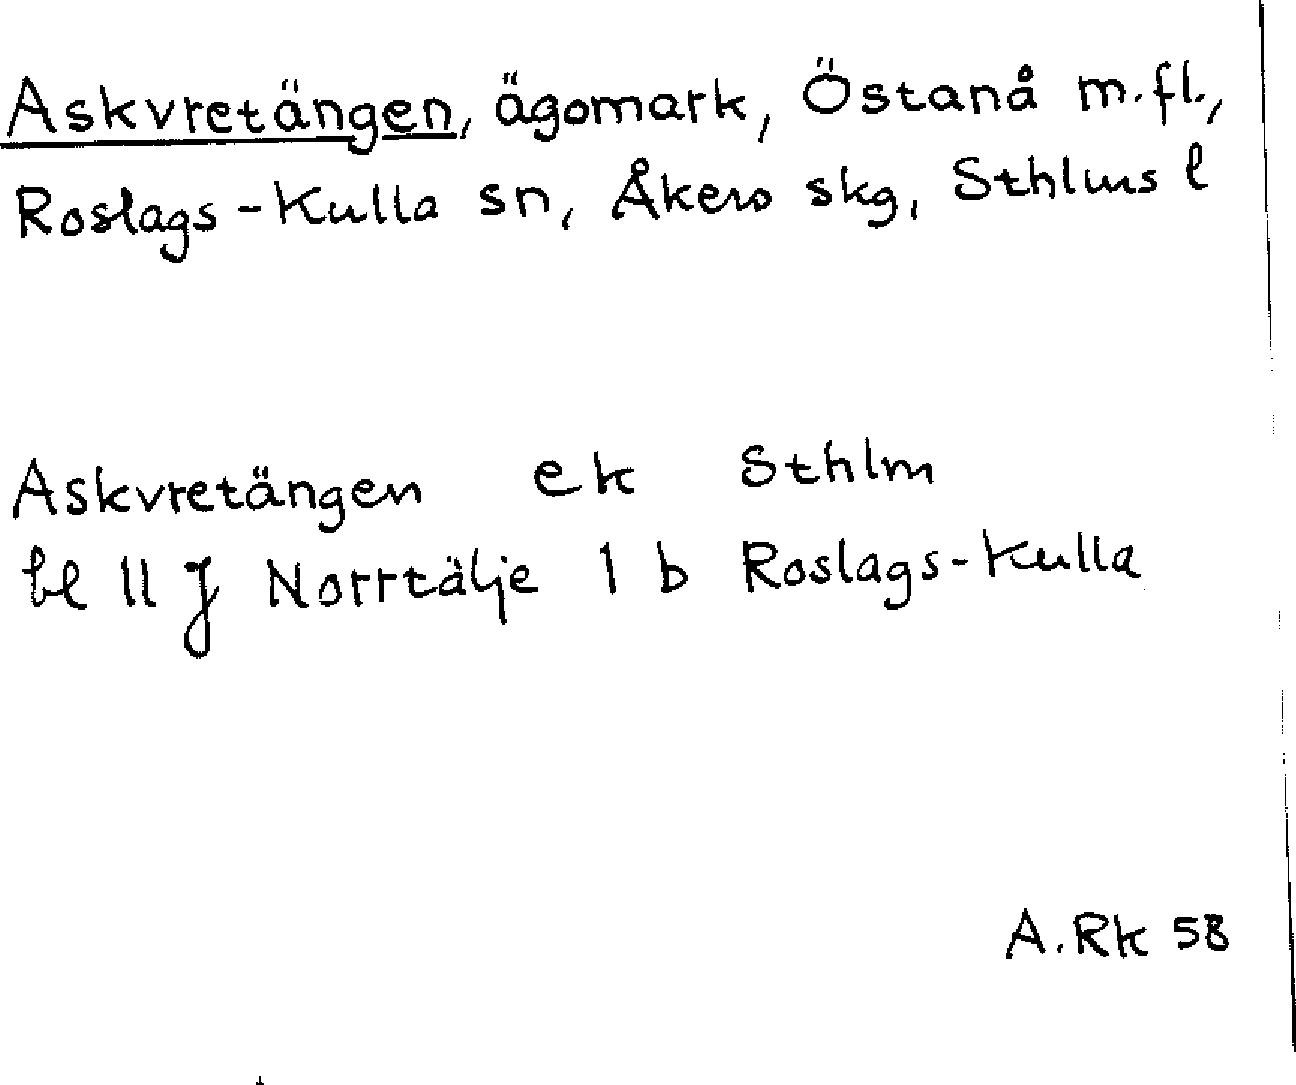 Askvretängen, ägomark, Östanå m.fl.,
Roslags-Kulla sn, Åkers skg, Sthlms l
Askvretängen ek Sthlm
bl 11 J Norrtälje 1 b Roslags-Kulla
A.Rk 58